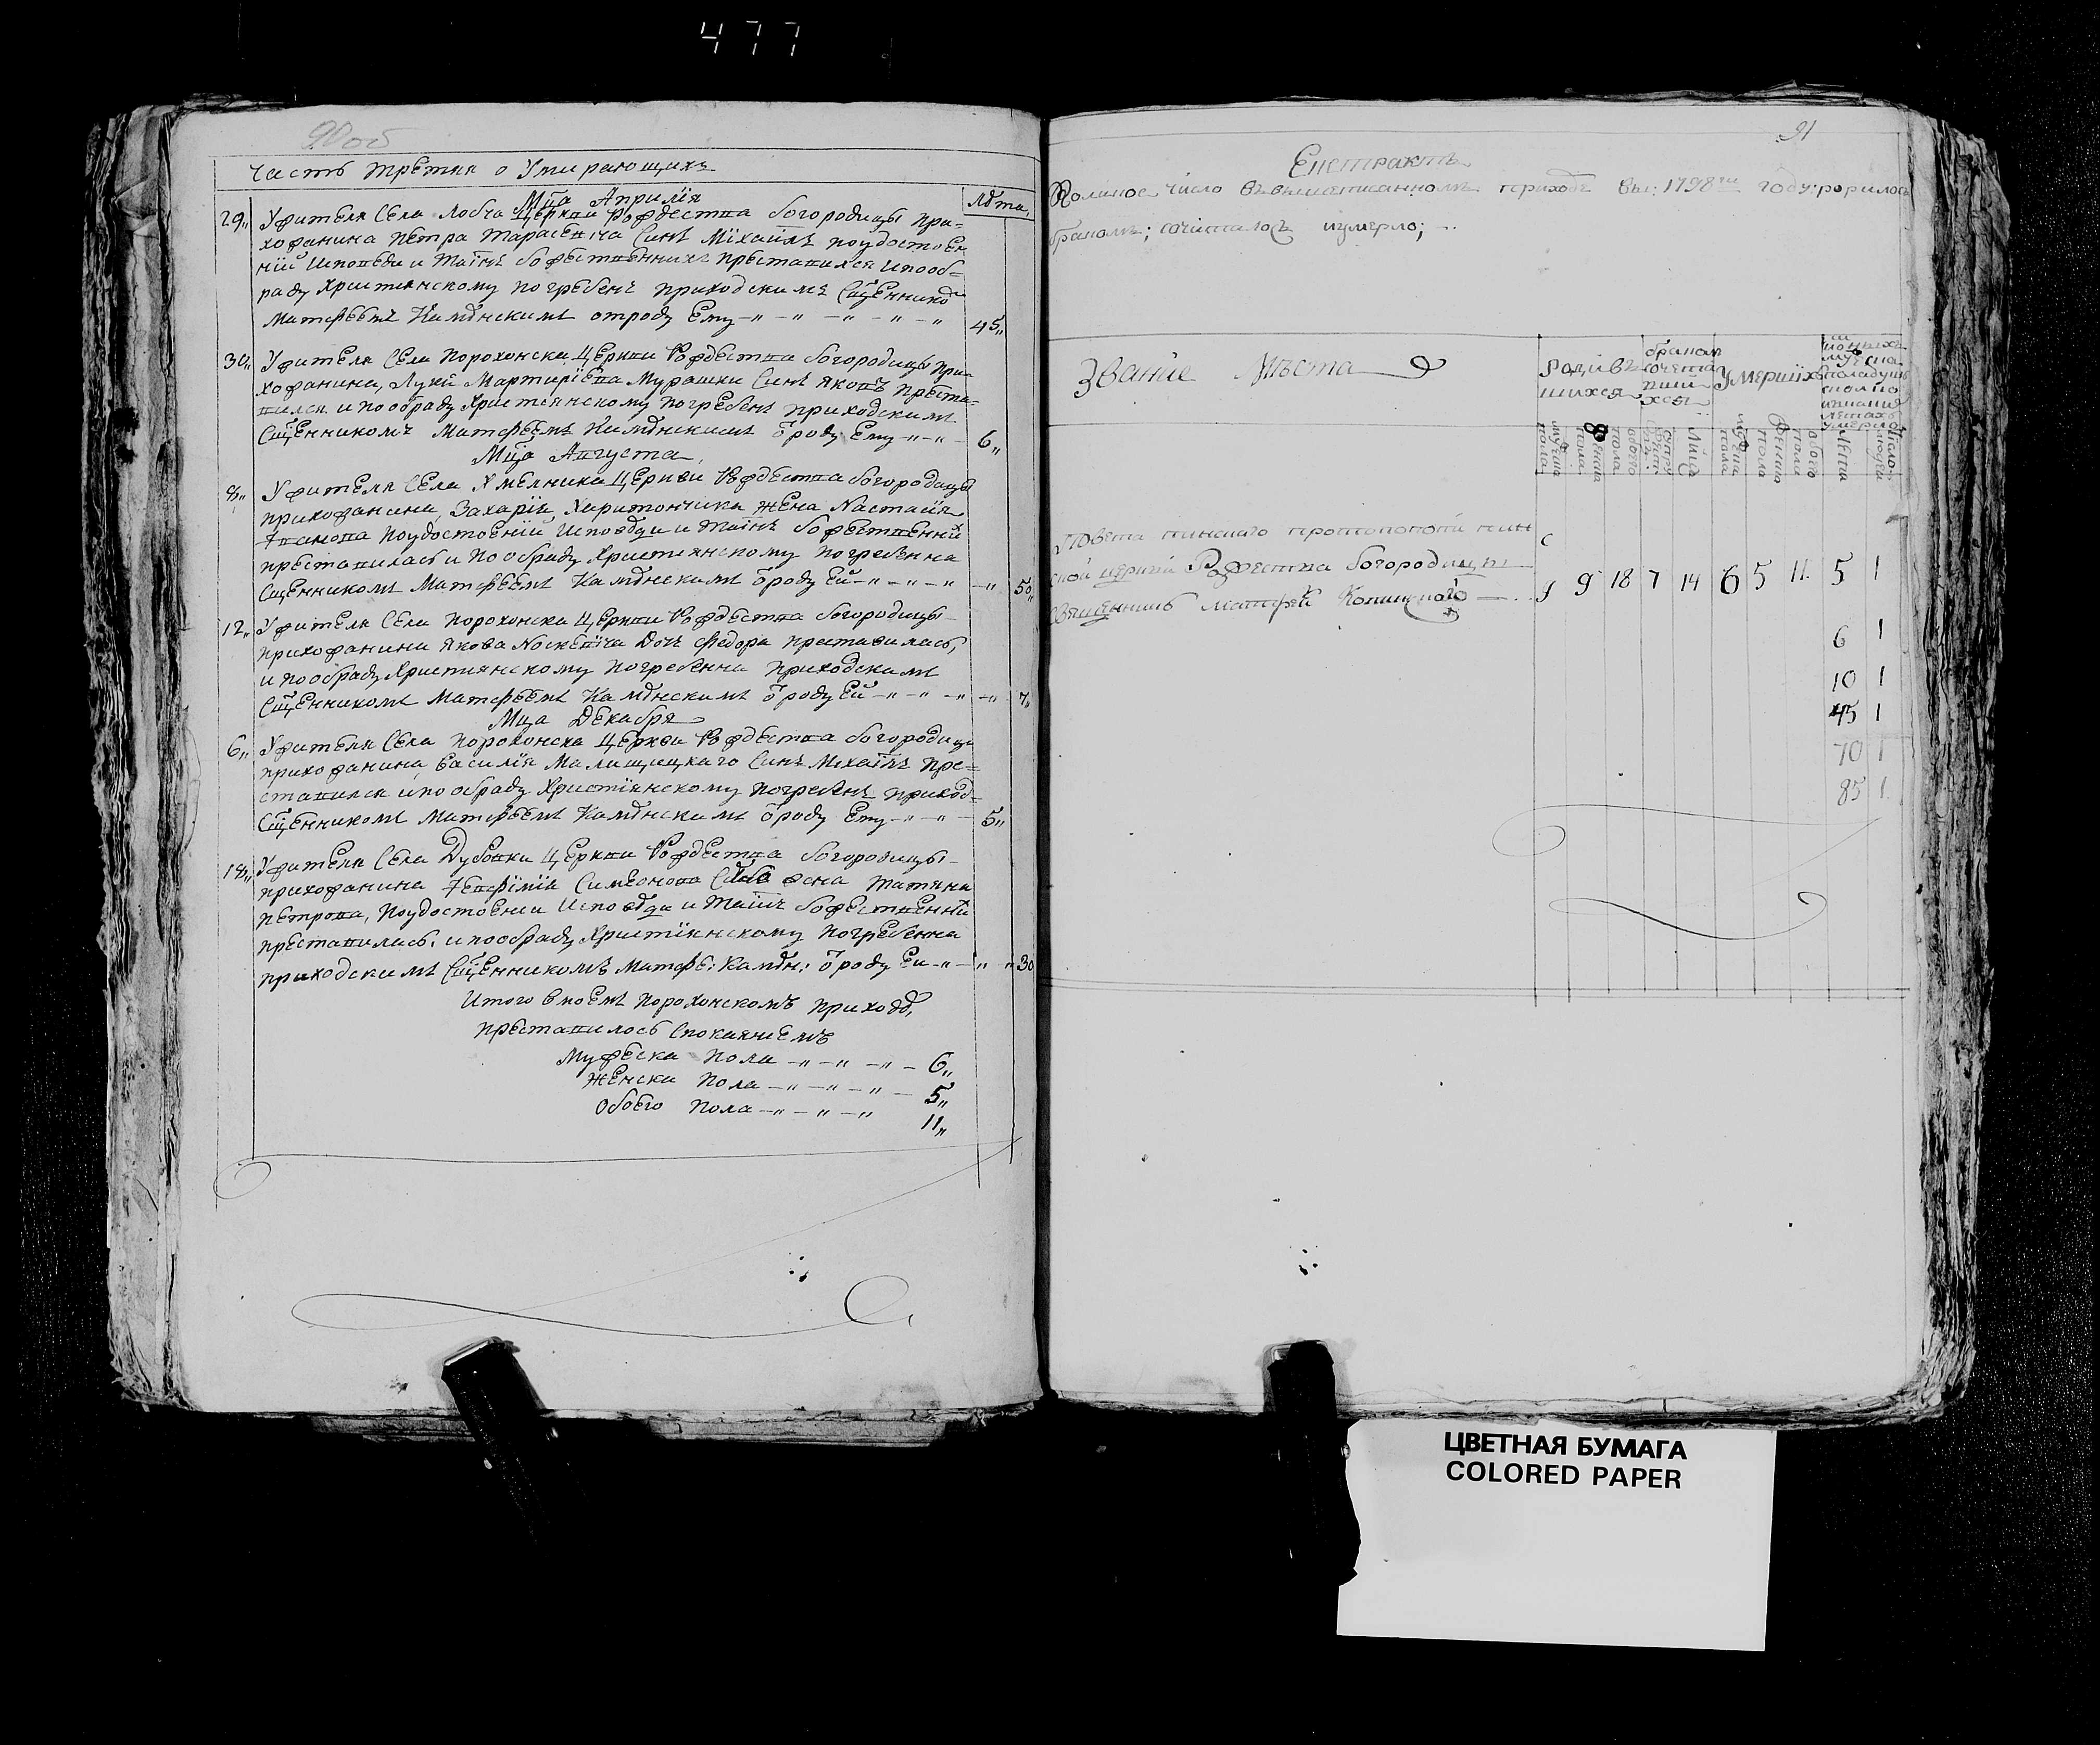 477
90 об
Часть третия о Умирающихъ
Мца Априлїя
Лѣта
29„ У жителя Села Лобча Церкви Рождества богородицы при-
хожанина Петра Тарасевича Синъ Міхаилъ поудостоен
ній Исповеди и Таінъ божественнихъ преставился ипооб-
раду християнскому погребенъ приходскимъ Сщенником
Матфеемъ Камѣнскимъ отроду Ему 45„
30„ У жителя Села Порохонска Церкви Рождества богородицы при-
хожанина, Луки Мартиріева Мурашки Синъ Яковъ преста-
вился и пообраду Християнскому погребенъ приходскимъ
Сщенникомъ Матфеемъ Камѣнскимъ ѿроду Ему 6„
Мца Августа
8„ У жителя Села Хмелника Церкви Рождества богородицы
прихожанина, Захарія Харитончика жена Настасія
Іванова поудостоеній Исповѣди и Таінъ божественній
преставилась и пообраду Християнскому погребенна
Сщенникомъ Матфеемъ Камѣнскимъ ѿроду Ей 50„
12„ У жителя Села Порохонска Церкви Рождества богородицы
прихожанина Якова Носкевіча Дочъ Федора преставилась,
и пообраду Християнскому погребенна приходскимъ
Сщенникомъ Матфеемъ Камѣнскимъ ѿроду Ей 7„
Мца Декабря
6„ У жителя Села Порохонска Церкви Рождества богородици
прихожанина, Василія Малищицкаго Синъ Міхаілъ пре-
ставился ипо обраду Християнскому погребенъ приход-
Сщенникомъ Матфеемъ Камѣнскимъ ѿроду Ему 5„
18„ У жителя Села Дубовки Церкви Рождества богородицы
прихожанина Іевфіміа Симеонова жена Татяна
Петрова, поудостоении Исповѣди и Таінъ божественній
преставилась, и пообраду Християнскому погребенна
приходскимъ Сщенникомъ Матфе: Камѣн: ѿроду Ей 30
Итого вмоемъ Порохонскомъ приходѣ,
преставилось Спокаяніемъ
Мужеска пола 6„
Женска пола 5„
Обоего пола 11„
91
Екстрактъ
Колікое число въвышеписанномъ приходе въ: 1798м году: родилось
бракомъ; сочиталось иумерло;
Званіе Мѣста
Родивъ
шихся
бракомъ
сочета
вши
хся
Умершихъ
мужска пола
женска пола
обоего пола
Лица
мужска пола
женска пола
обоего пола
Лѣта
Число людей
Повета пинскаго протопопоти пин
ской церкви Рождества богородицы
Священникъ Матфей Каминскій
9 9 18 7 14 6 5 11. 5 1
6 1
10 1
45 1
70 1
85 1
ЦВЕТНАЯ БУМАГА
COLORED PAPER